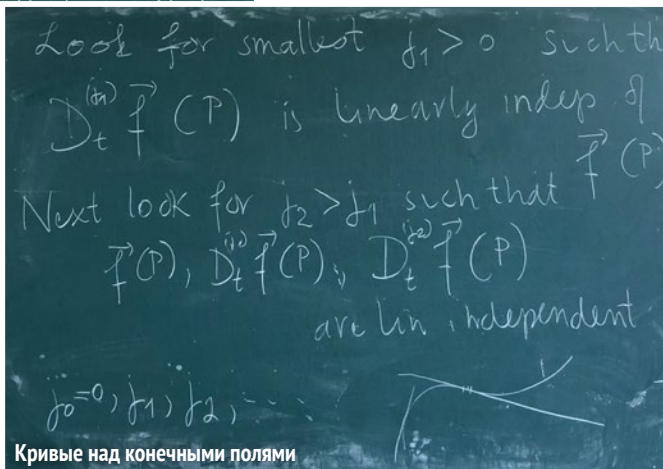 Look for smallest j₁ > 0 such th
D_t^(j₁) f⃗ (P) is linearly indep of
f⃗ (P)
Next look for j₂ > j₁ such that
f⃗(P), D_t^(j₁) f⃗(P), D_t^(j₂) f⃗(P)
are lin. independent
j₀=0, j₁, j₂, ....
Кривые над конечными полями